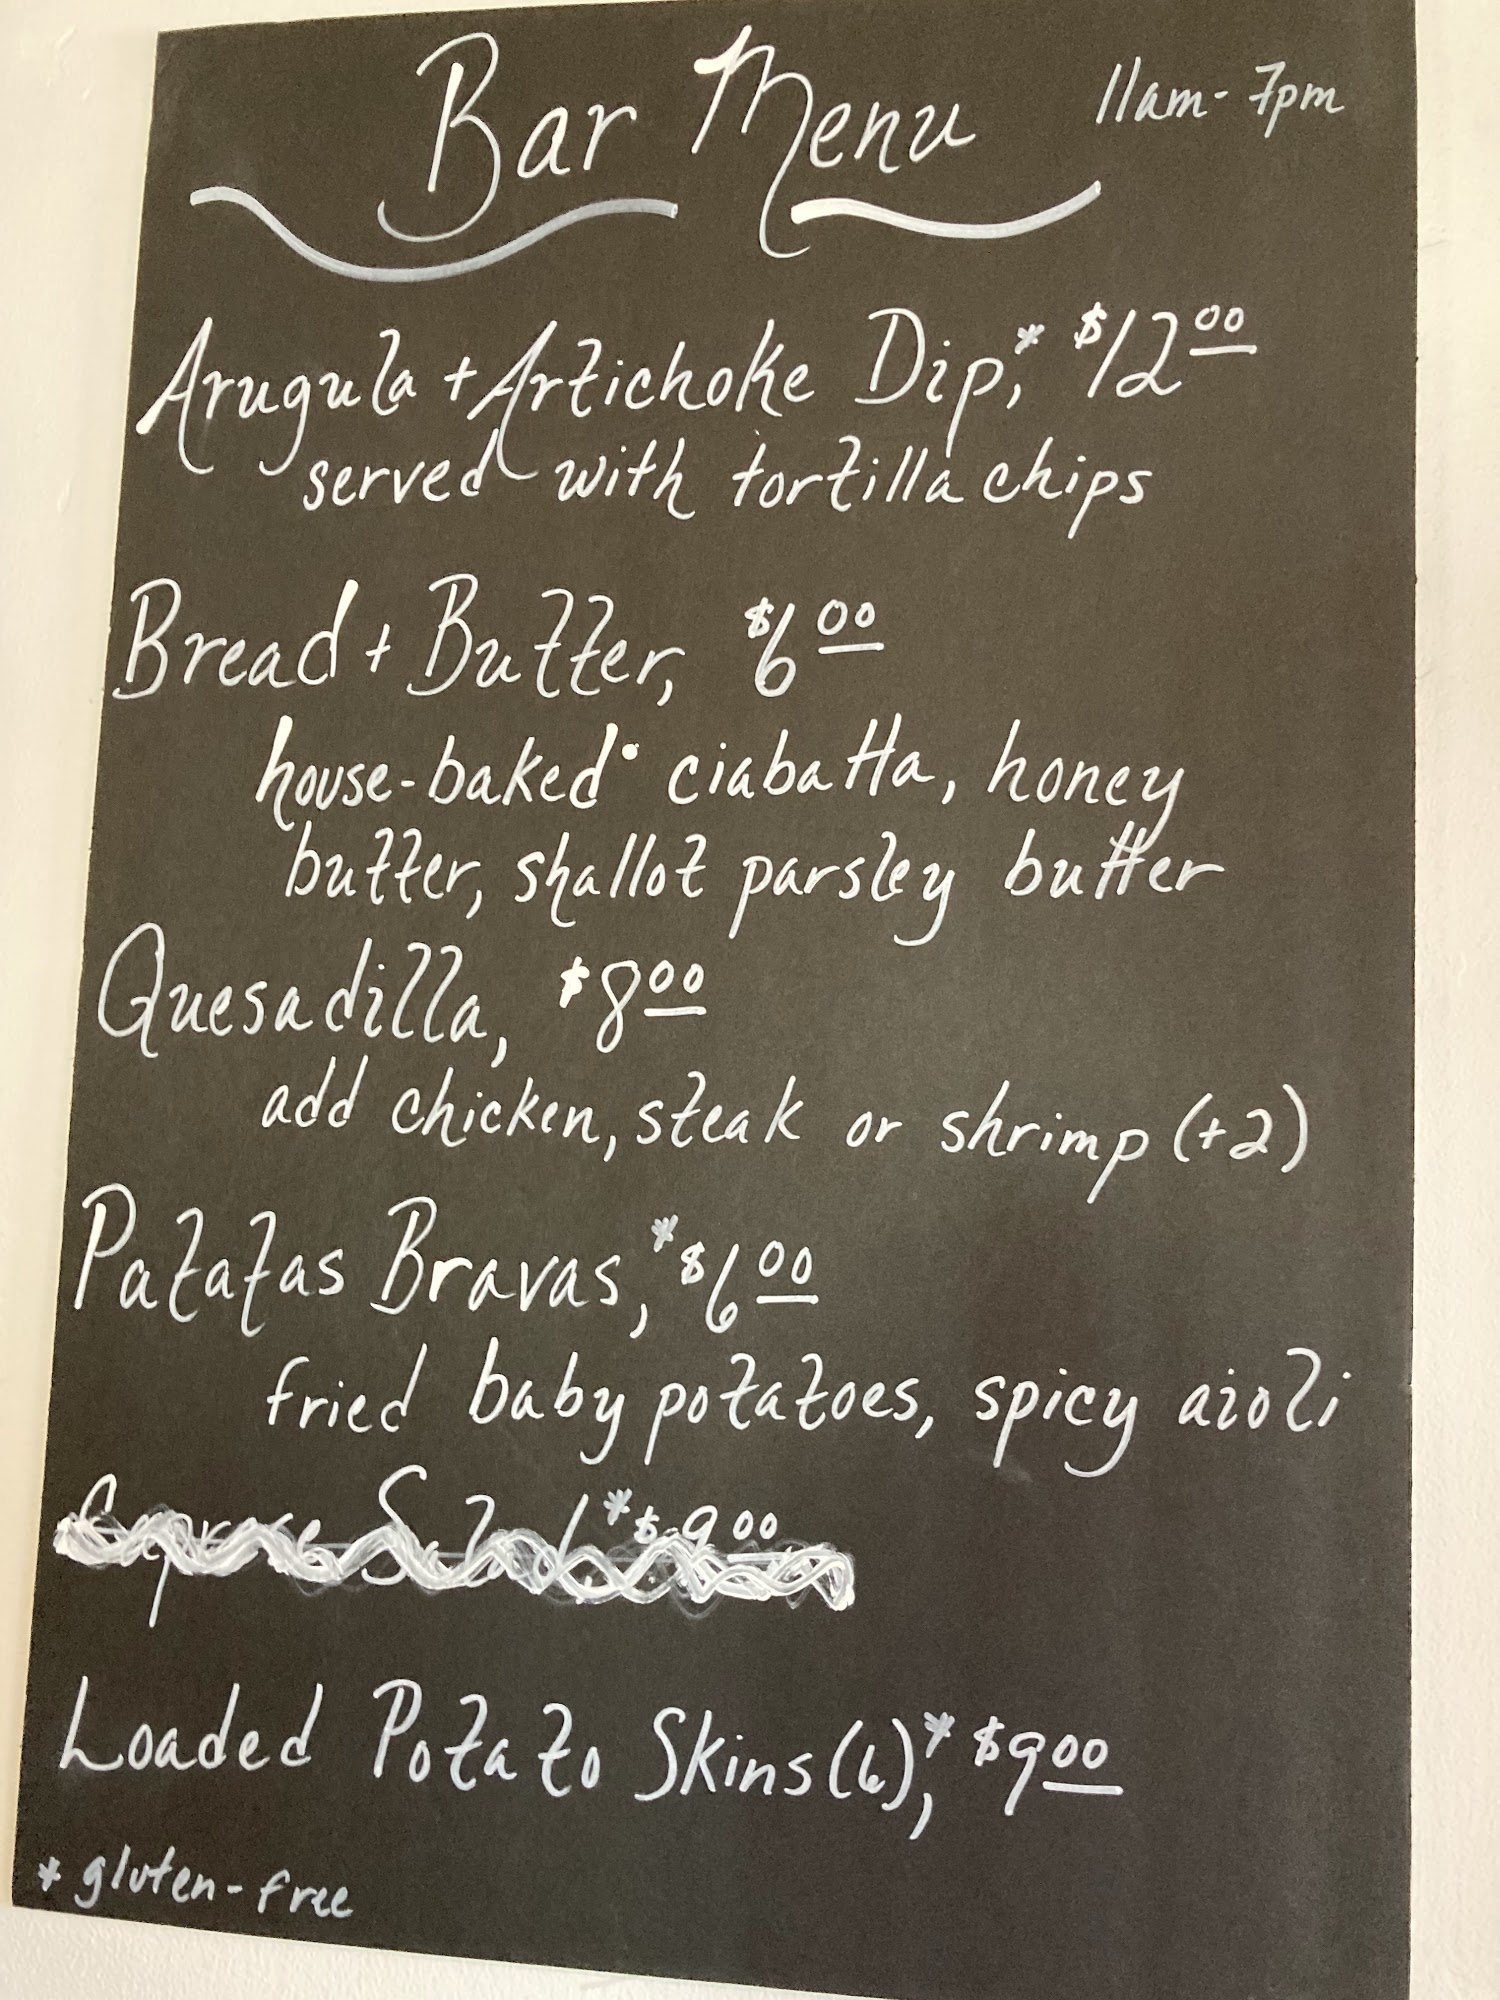 Bar Menu 11am-7pm
Arugula + Artichoke Dip,* $12.00
served with tortilla chips
Bread + Butter, $6.00
house-baked ciabatta, honey
butter, shallot parsley butter
Quesadilla, $8.00
add chicken, steak or shrimp (+2)
Patatas Bravas,* $6.00
fried baby potatoes, spicy aioli
Caprese Salad,* $9.00
Loaded Potato Skins (6),* $9.00
* gluten-free